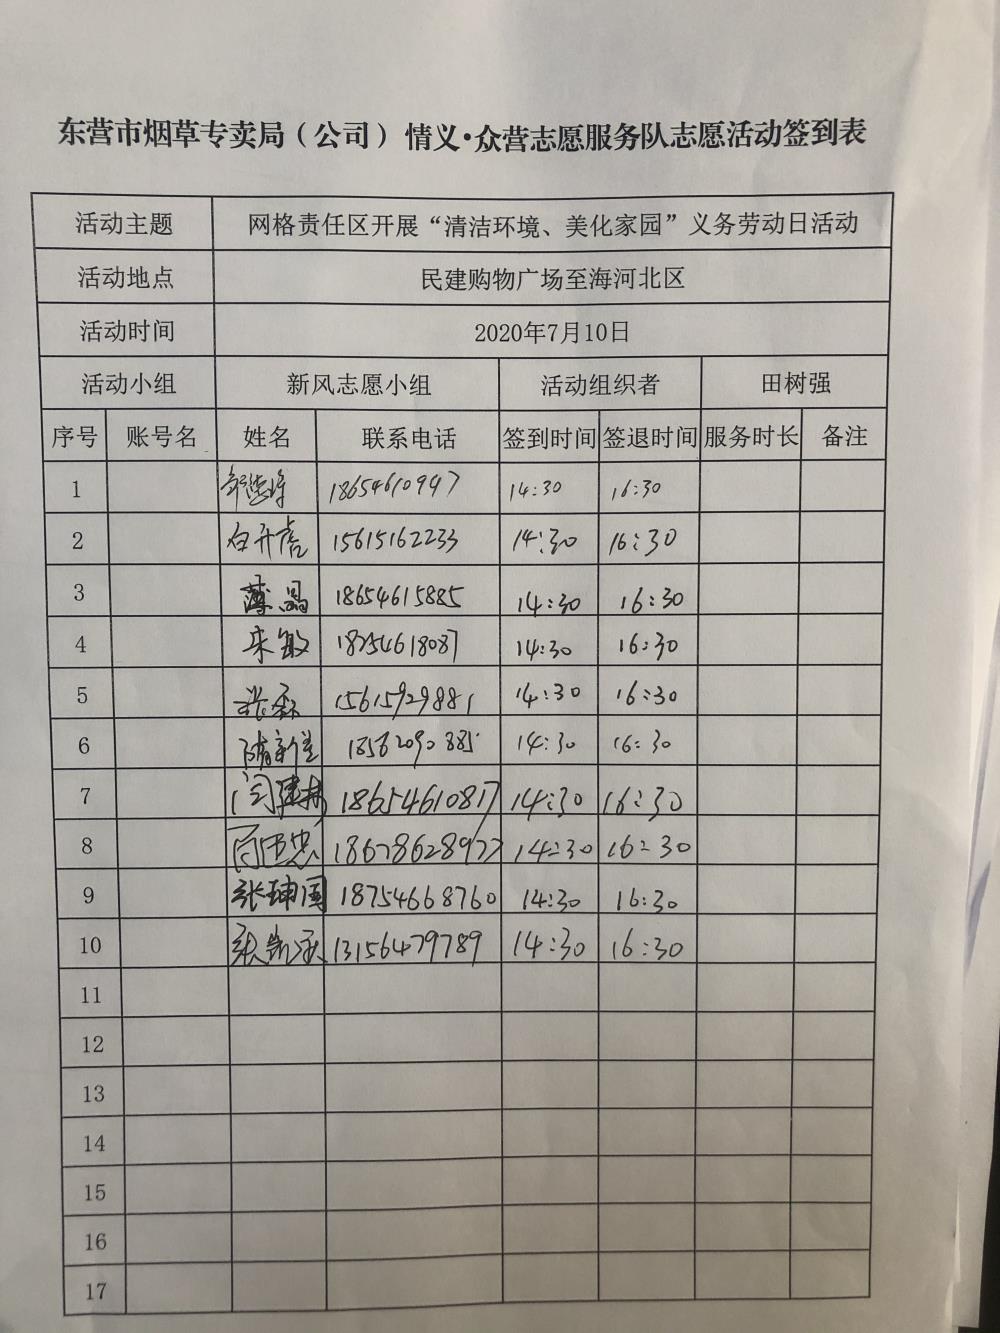 东营市烟草专卖局（公司）情义·众营志愿服务队志愿活动签到表
活动主题 网格责任区开展“清洁环境、美化家园”义务劳动日活动
活动地点 民建购物广场至海河北区
活动时间 2020年7月10日
活动小组 新风志愿小组 活动组织者 田树强
序号 账号名 姓名 联系电话 签到时间 签退时间 服务时长 备注
1 18654610947 14:30 16:30
2 白开虎 15615162233 14:30 16:30
3 薄晶 18654615885 14:30 16:30
4 宋敏 18254618087 14:30 16:30
5 张 15615929881 14:30 16:30
6 隋新 18562090885 14:30 16:30
7 闫建林 18654610817 14:30 16:30
8 18678628977 14:30 16:30
9 张坤国 18754668760 14:30 16:30
10 张凯 13156479789 14:30 16:30
11
12
13
14
15
16
17